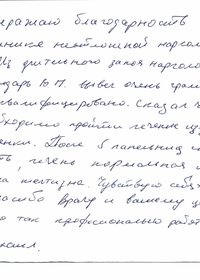 ражаю благодарность
нике неотложной нарколо
Из длительного запоя нарколо
дарь Ю.М. вывел очень грам
валифицировано. Сказал ч
бходимо пройти лечение из
ении. После 5 капельниц
ть, печень нормальная и
на желтизна. Чувствую себя
асибо врачу и вашему ц
о так профессионально работ